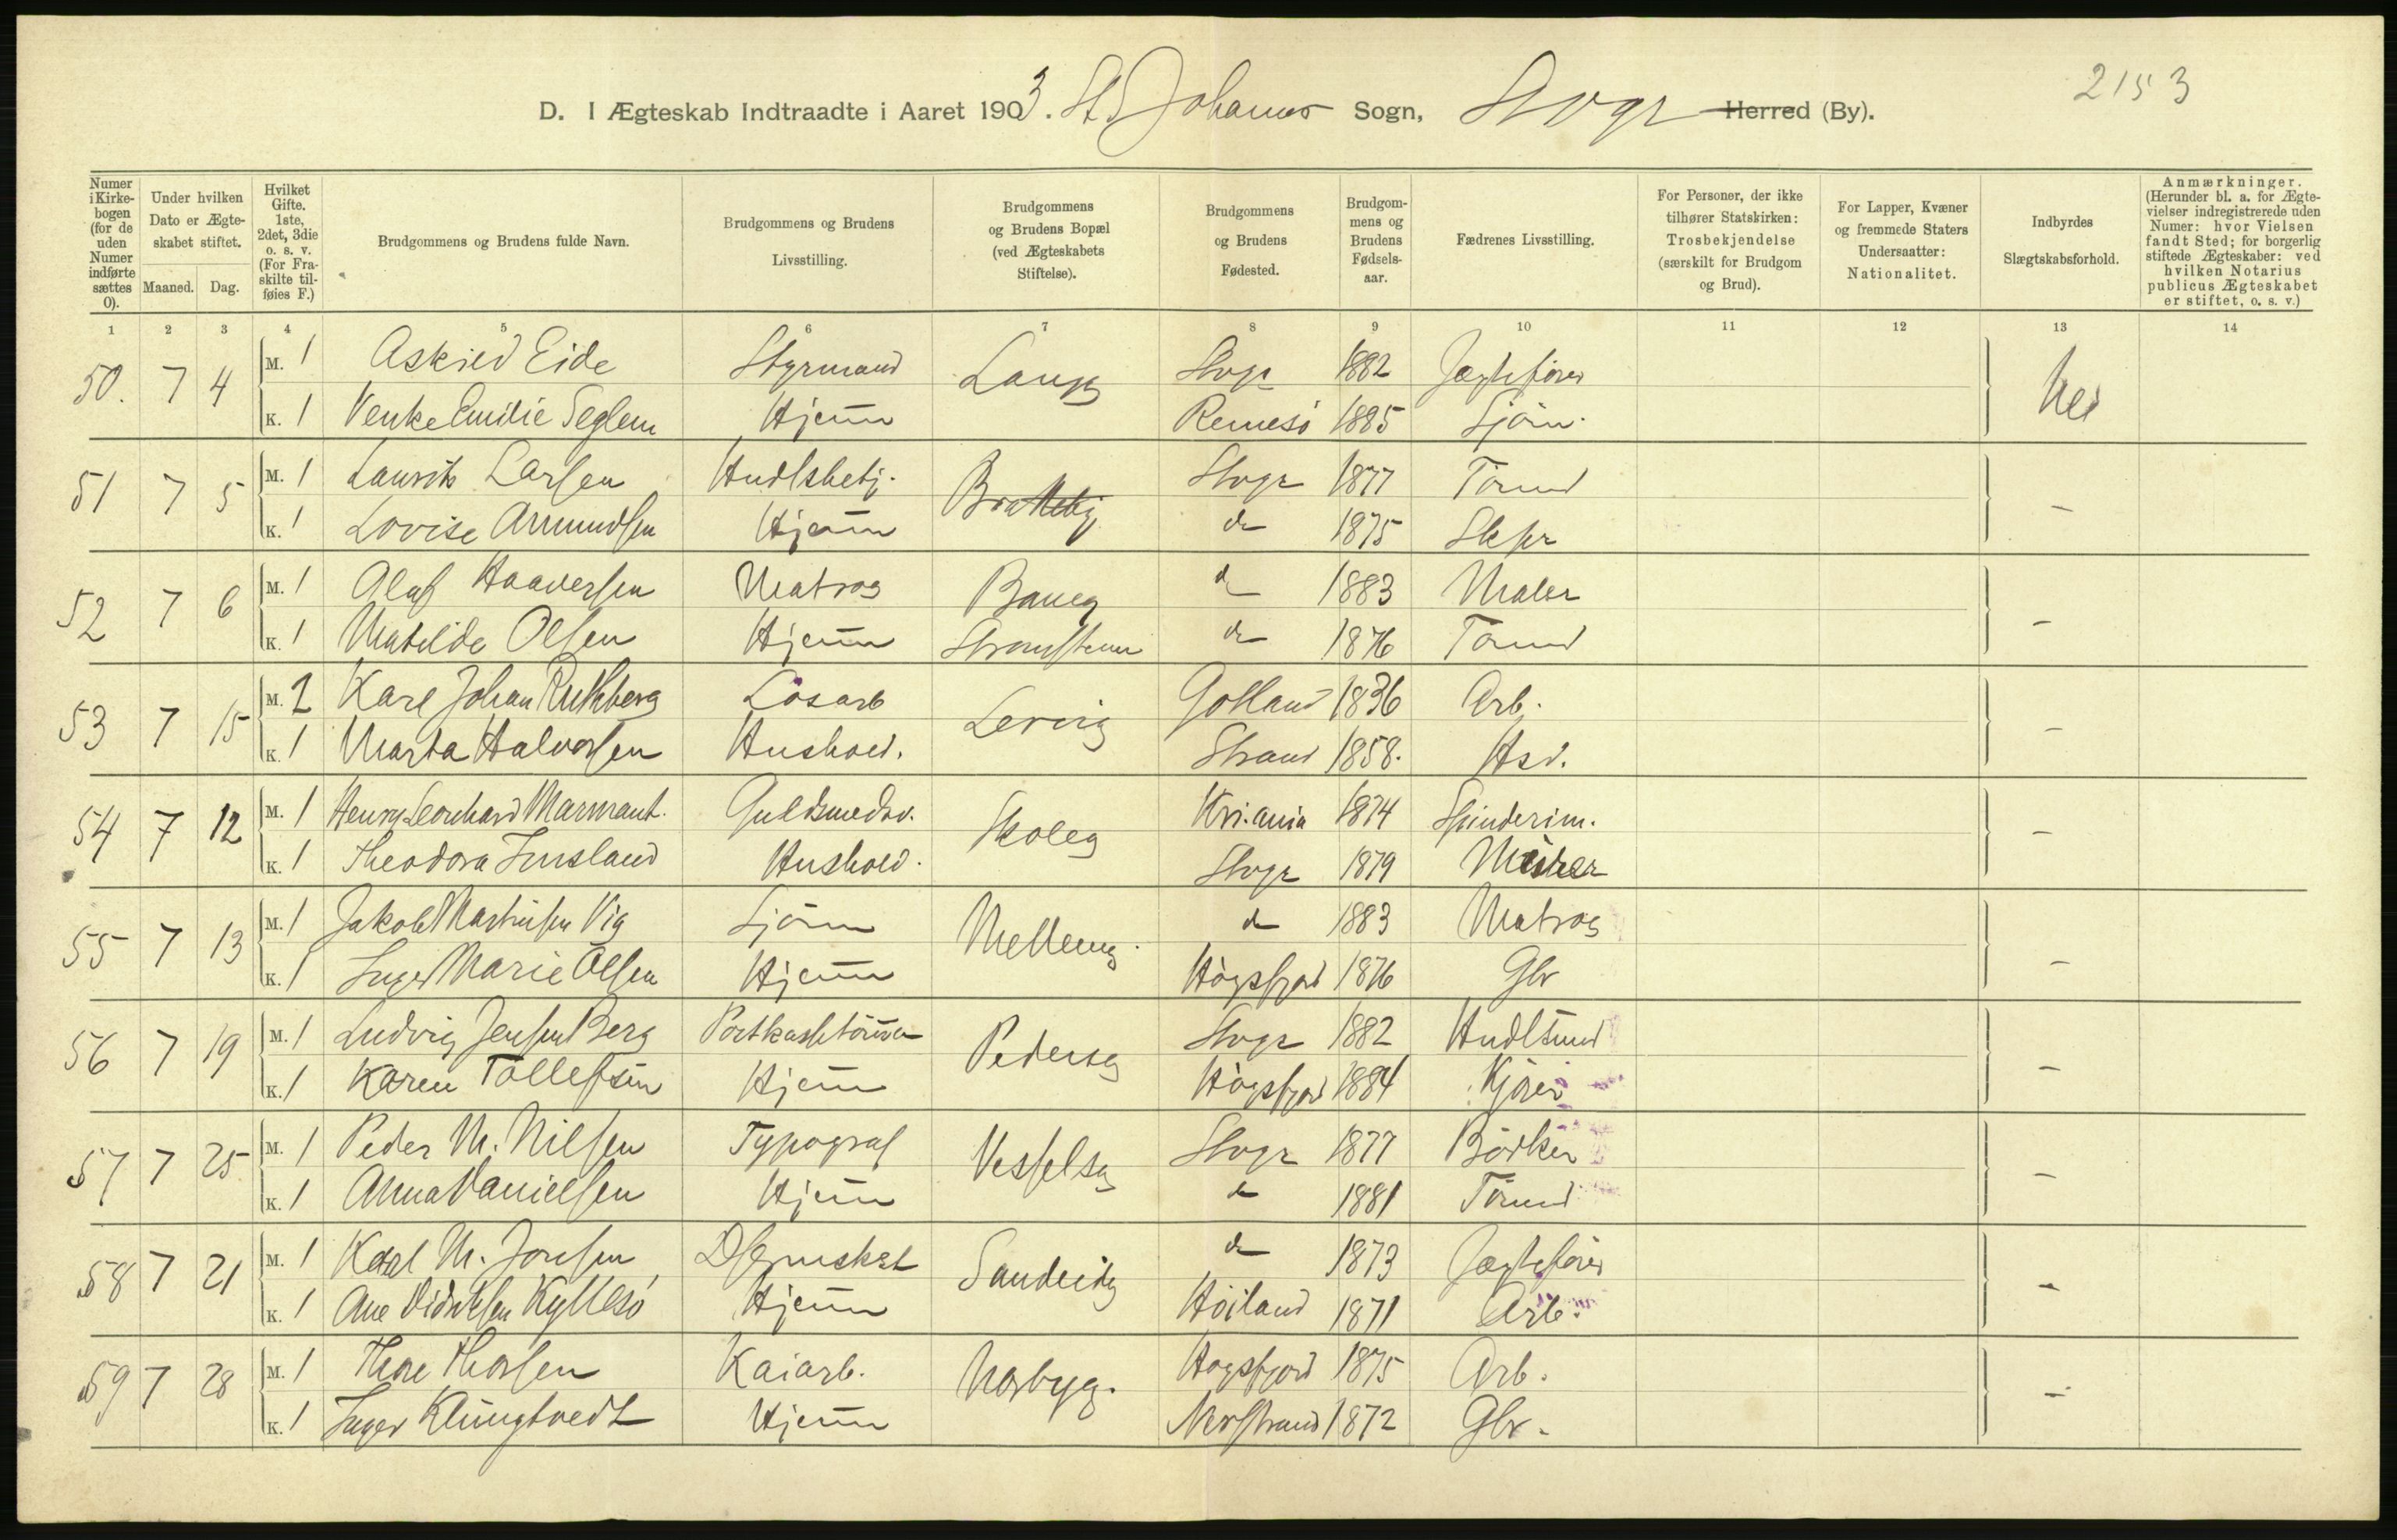 2153
D. I Ægteskab Indtraadte i Aaret 1903. St. Johannes Sogn, Stvgr Herred (By).
Numer i Kirkebogen (for de uden Numer indførte sættes 0).
Under hvilken Dato er Ægteskabet stiftet.
Maaned. Dag.
Hvilket Gifte. 1ste, 2det, 3die o. s. v. (For Fraskilte tilføies F.)
Brudgommens og Brudens fulde Navn.
Brudgommens og Brudens Livsstilling.
Brudgommens og Brudens Bopæl (ved Ægteskabets Stiftelse).
Brudgommens og Brudens Fødested.
Brudgommens og Brudens Fødselsaar.
Fædrenes Livsstilling.
For Personer, der ikke tilhører Statskirken: Trosbekjendelse (særskilt for Brudgom og Brud).
For Lapper, Kvæner og fremmede Staters Undersaatter: Nationalitet.
Indbyrdes Slægtskabsforhold.
Anmærkninger. (Herunder bl. a. for Ægtevielser indregistrerede uden Numer: hvor Vielsen fandt Sted; for borgerlig stiftede Ægteskaber: ved hvilken Notarius publicus Ægteskabet er stiftet, o. s. v.)
1 2 3 4 5 6 7 8 9 10 11 12 13 14
50. 7 4 M. 1 Askild Eide Styrmand Langg Stvgr 1882 Jægtefører Nei
K. 1 Venke Emilie Seglem Hjem̄ Rennesö 1885 Sjöm.
51 7 5 M. 1 Laurits Larsen Hndlsbetj. Stvgr 1877 Tömd —
K. 1 Lovise Amundsen Hjem̄ do 1875 Skpr
52 7 6 M. 1 Olaf Haaversen Matros Baneg do 1883 Maler —
K. 1 Matilde Olsen Hjem̄ do 1876 Tömd
53 7 15 M. 2 Karl Johan Ruthberg Lösarb Levvig Gotland 1836 Arb. —
K. 1 Marta Halvorsen Hushold. Strand 1858. Hsd.
54 7 12 M. 1 Henry Leonhard Marmant. Guldsmedsv. Skoleg Kri.ania 1874 Spinderim. —
K. 1 Theodora Imsland Hushold. Stvgr 1879 Murer
55 7 13 M. 1 Jakob Martinsen Vig Sjöm Melleng. do 1883 Matros —
K. 1 Inger Marie Olsen Hjem̄ Högsfjord 1876 Gbr
56 7 19 M. 1 Ludvig Jensen Berg Postkassetöm̄er Pedersg Stvgr 1882 Hndlsmd —
K. 1 Karen Tollefsen Hjem̄ Högsfjord 1884 Kjörer
57 7 25 M. 1 Peder M. Nilsen Typograf Vesselsg Stvgr 1877 Bödker —
K. 1 Anna Danielsen Hjem̄ do 1881 Tömd
58 7 21 M. 1 Karl M. Jonsen Sandeidg do 1873 Jægtefører —
K. 1 Ane Didriksen Kyllesö Hjem̄ Höiland 1871 Arb.
59 7 28 M. 1 Thore Thorsen Kaiarb. Norbyg. Hogsfjord 1875 Arb. —
K. 1 Inger Klungtvedt Hjem̄ Nerstrand 1872 Gbr.